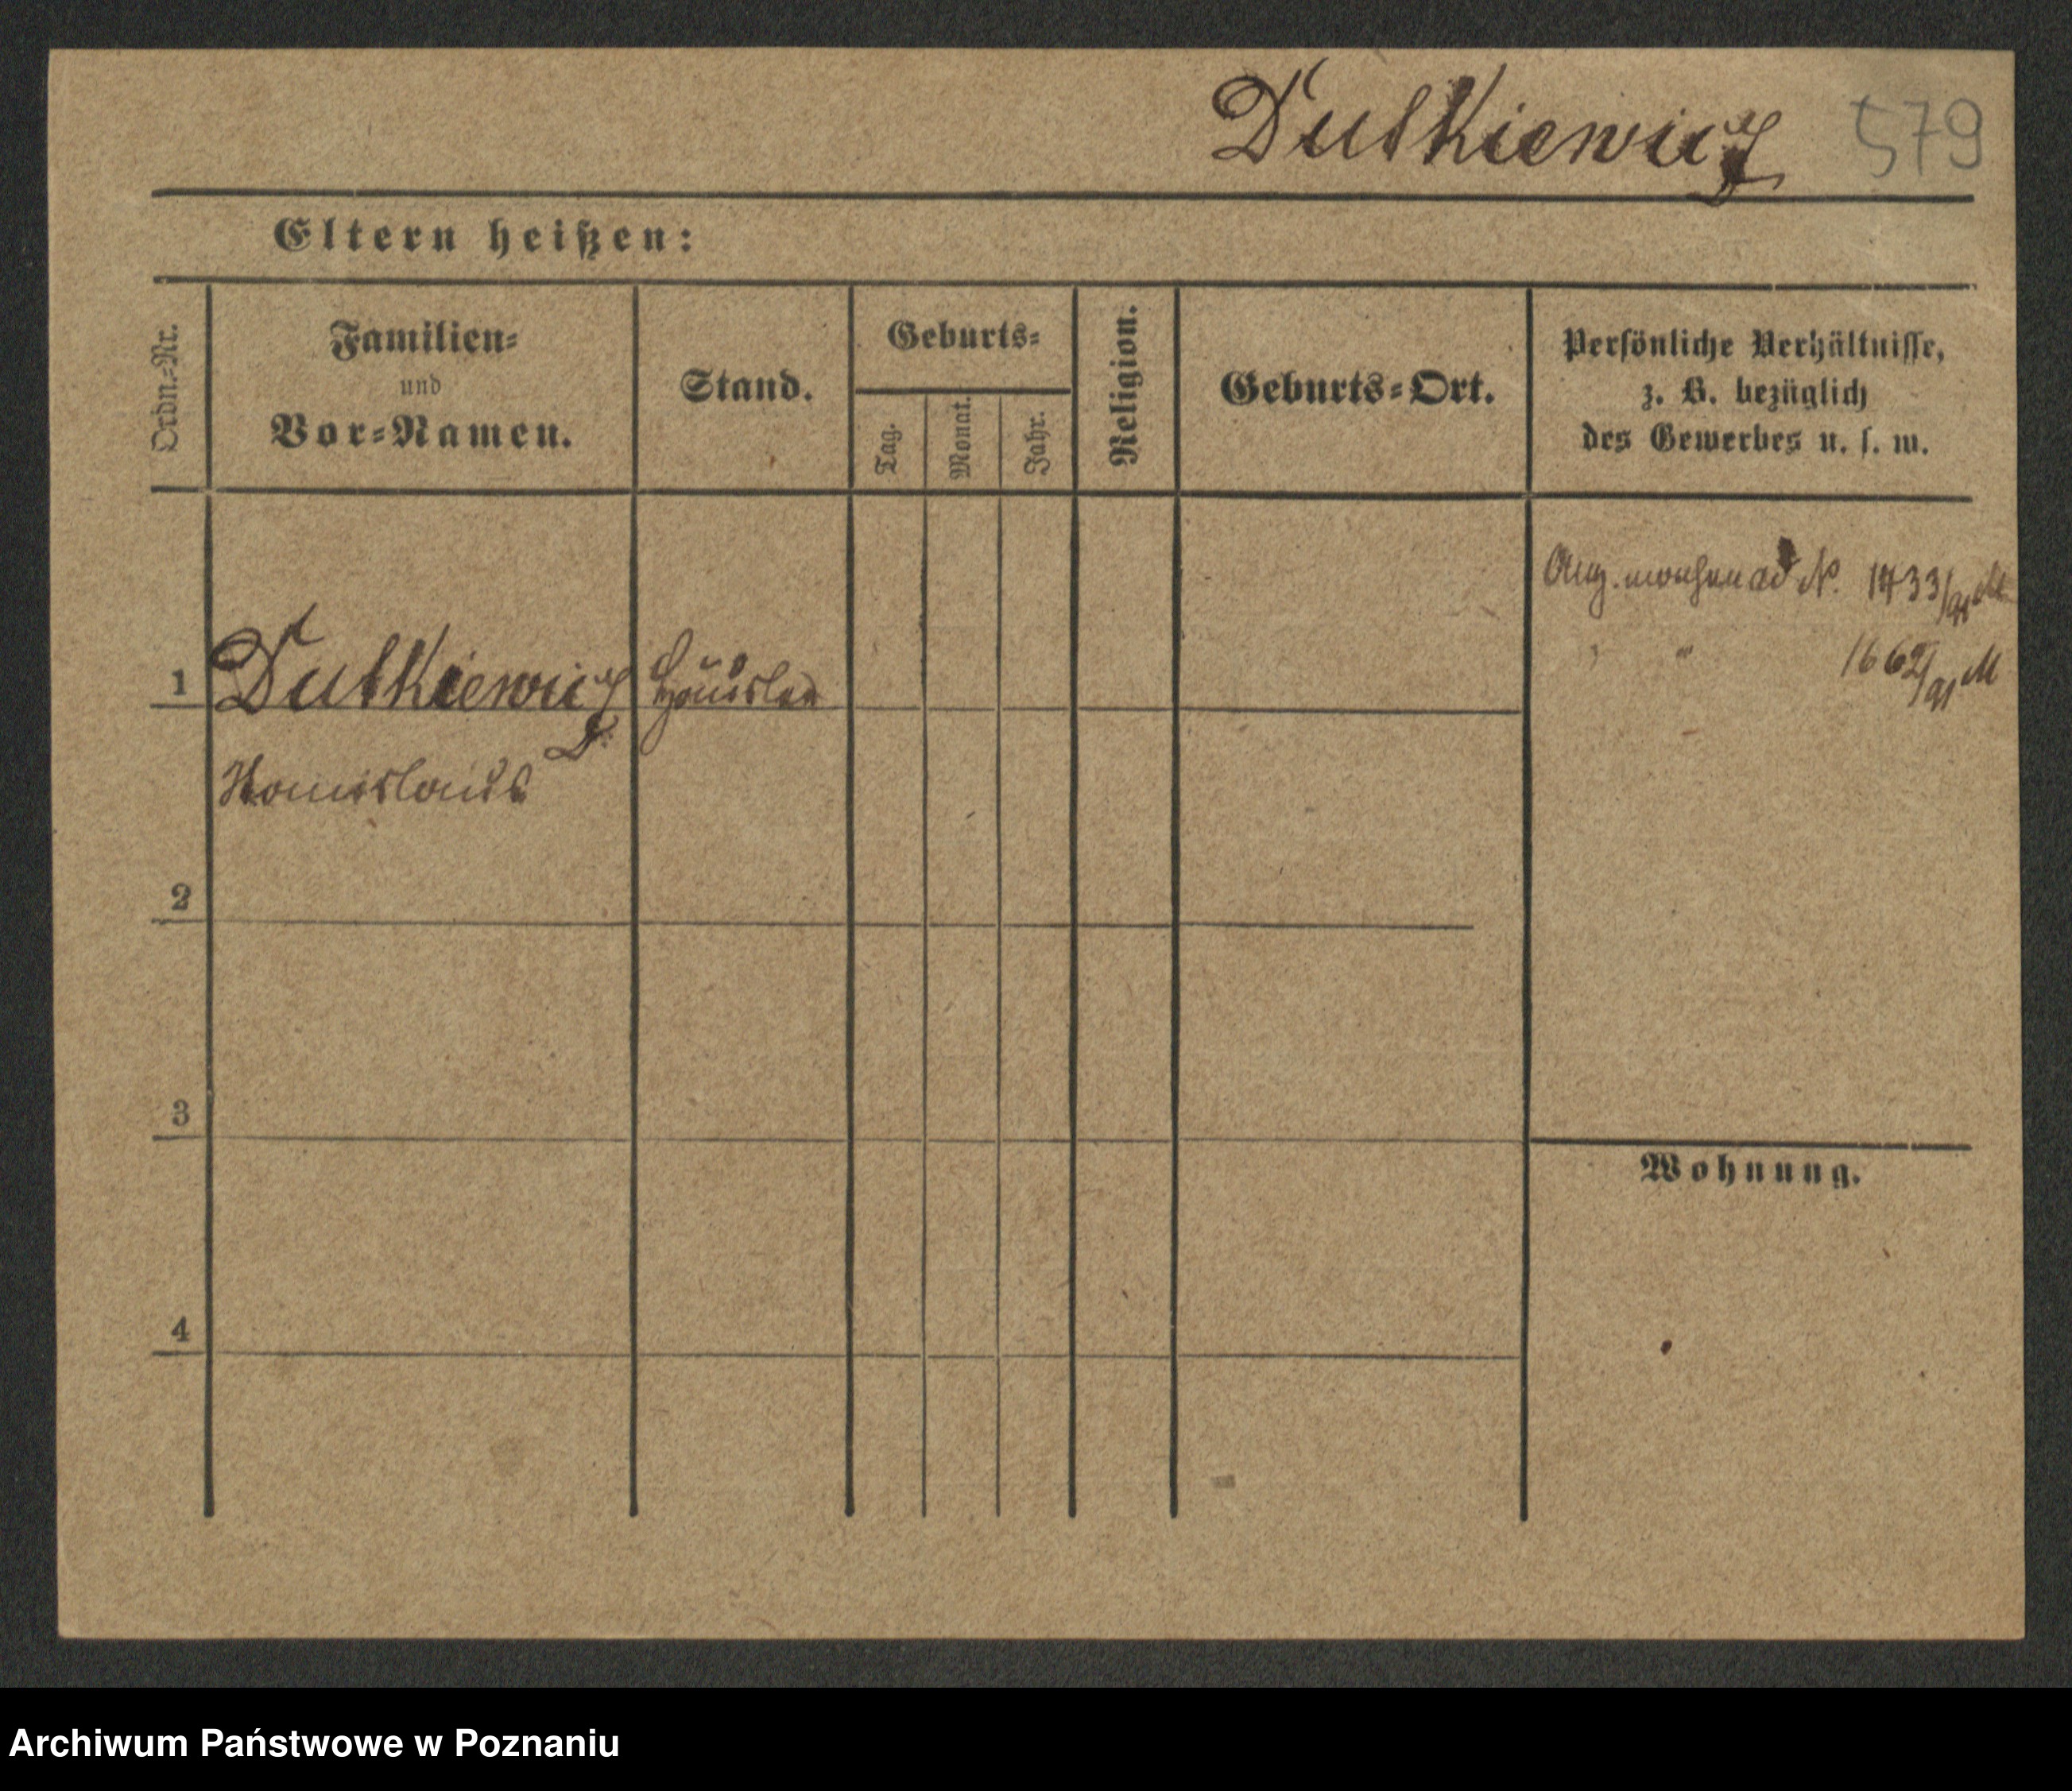 Dutkiewicz 579
Eltern heißen:
Ordn.-Nr.
Familien-
und
Vor-Namen.
Stand.
Geburts-
Tag.
Monat.
Jahr.
Religion.
Geburts-Ort.
Persönliche Verhältnisse,
z. B. bezüglich
des Gewerbes u. s. w.
1 Dutkiewicz Häusler
Stanislaus
ad No. 1733/91 M
" " 1662/91 M
2
3
4
Wohnung.
Archiwum Państwowe w Poznaniu